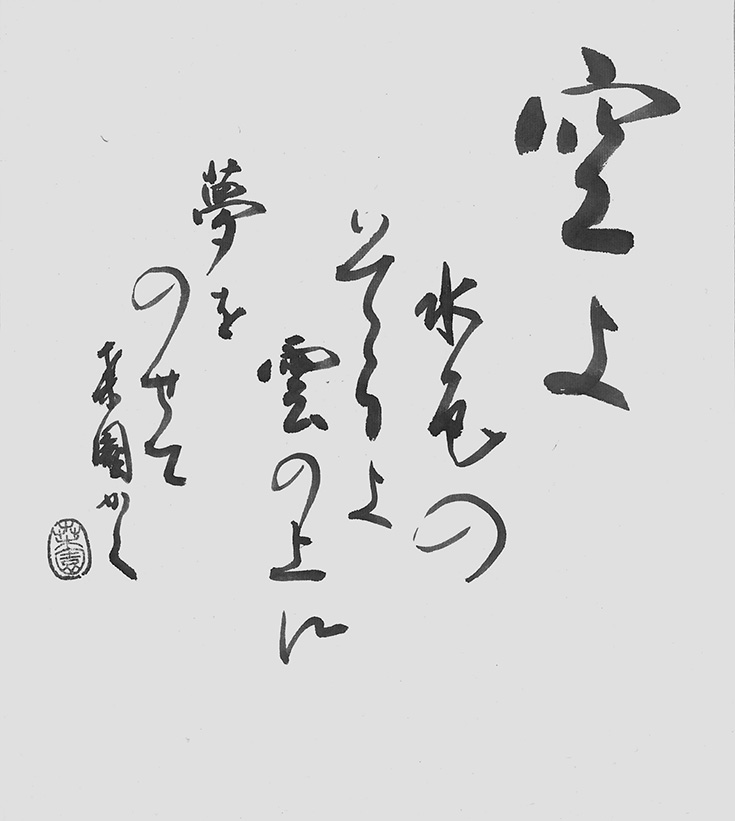 空よ
水色の
そらよ
雲の上に
夢を
のせて
菜園かく